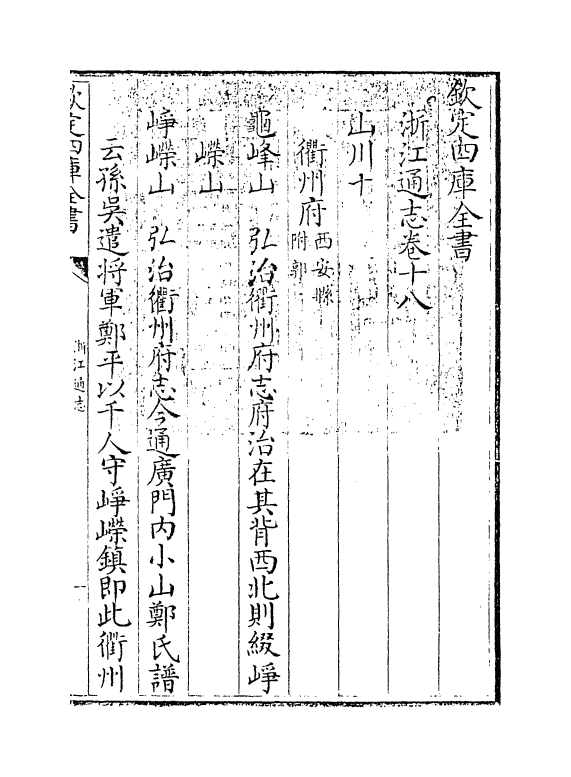 欽定四庫全書
浙江通志卷十八
山川十
衢州府西安縣
附郭
龜峰山　弘治衢州府志府治在其背西北則綴崢
嶸山
崢嶸山　弘治衢州府志今通廣門内小山鄭氏譜
云孫吳遣將軍鄭平以千人守崢嶸鎮即此衢州
欽定四庫全書
浙江通志
一